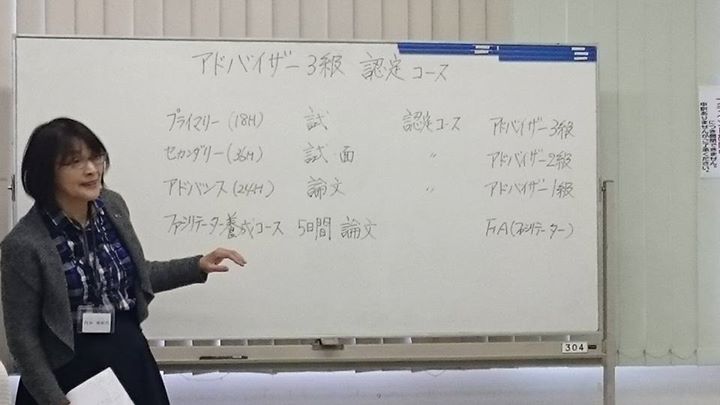 アドバイザー3級 認定コース
プライマリー(18H) 試 認定コース アドバイザー3級
セカンダリー(36H) 試 面 〃 アドバイザー2級
アドバンス(24H) 論文 〃 アドバイザー1級
ファシリテーター養成コース 5日間 論文 FA(ファシリテーター)
304